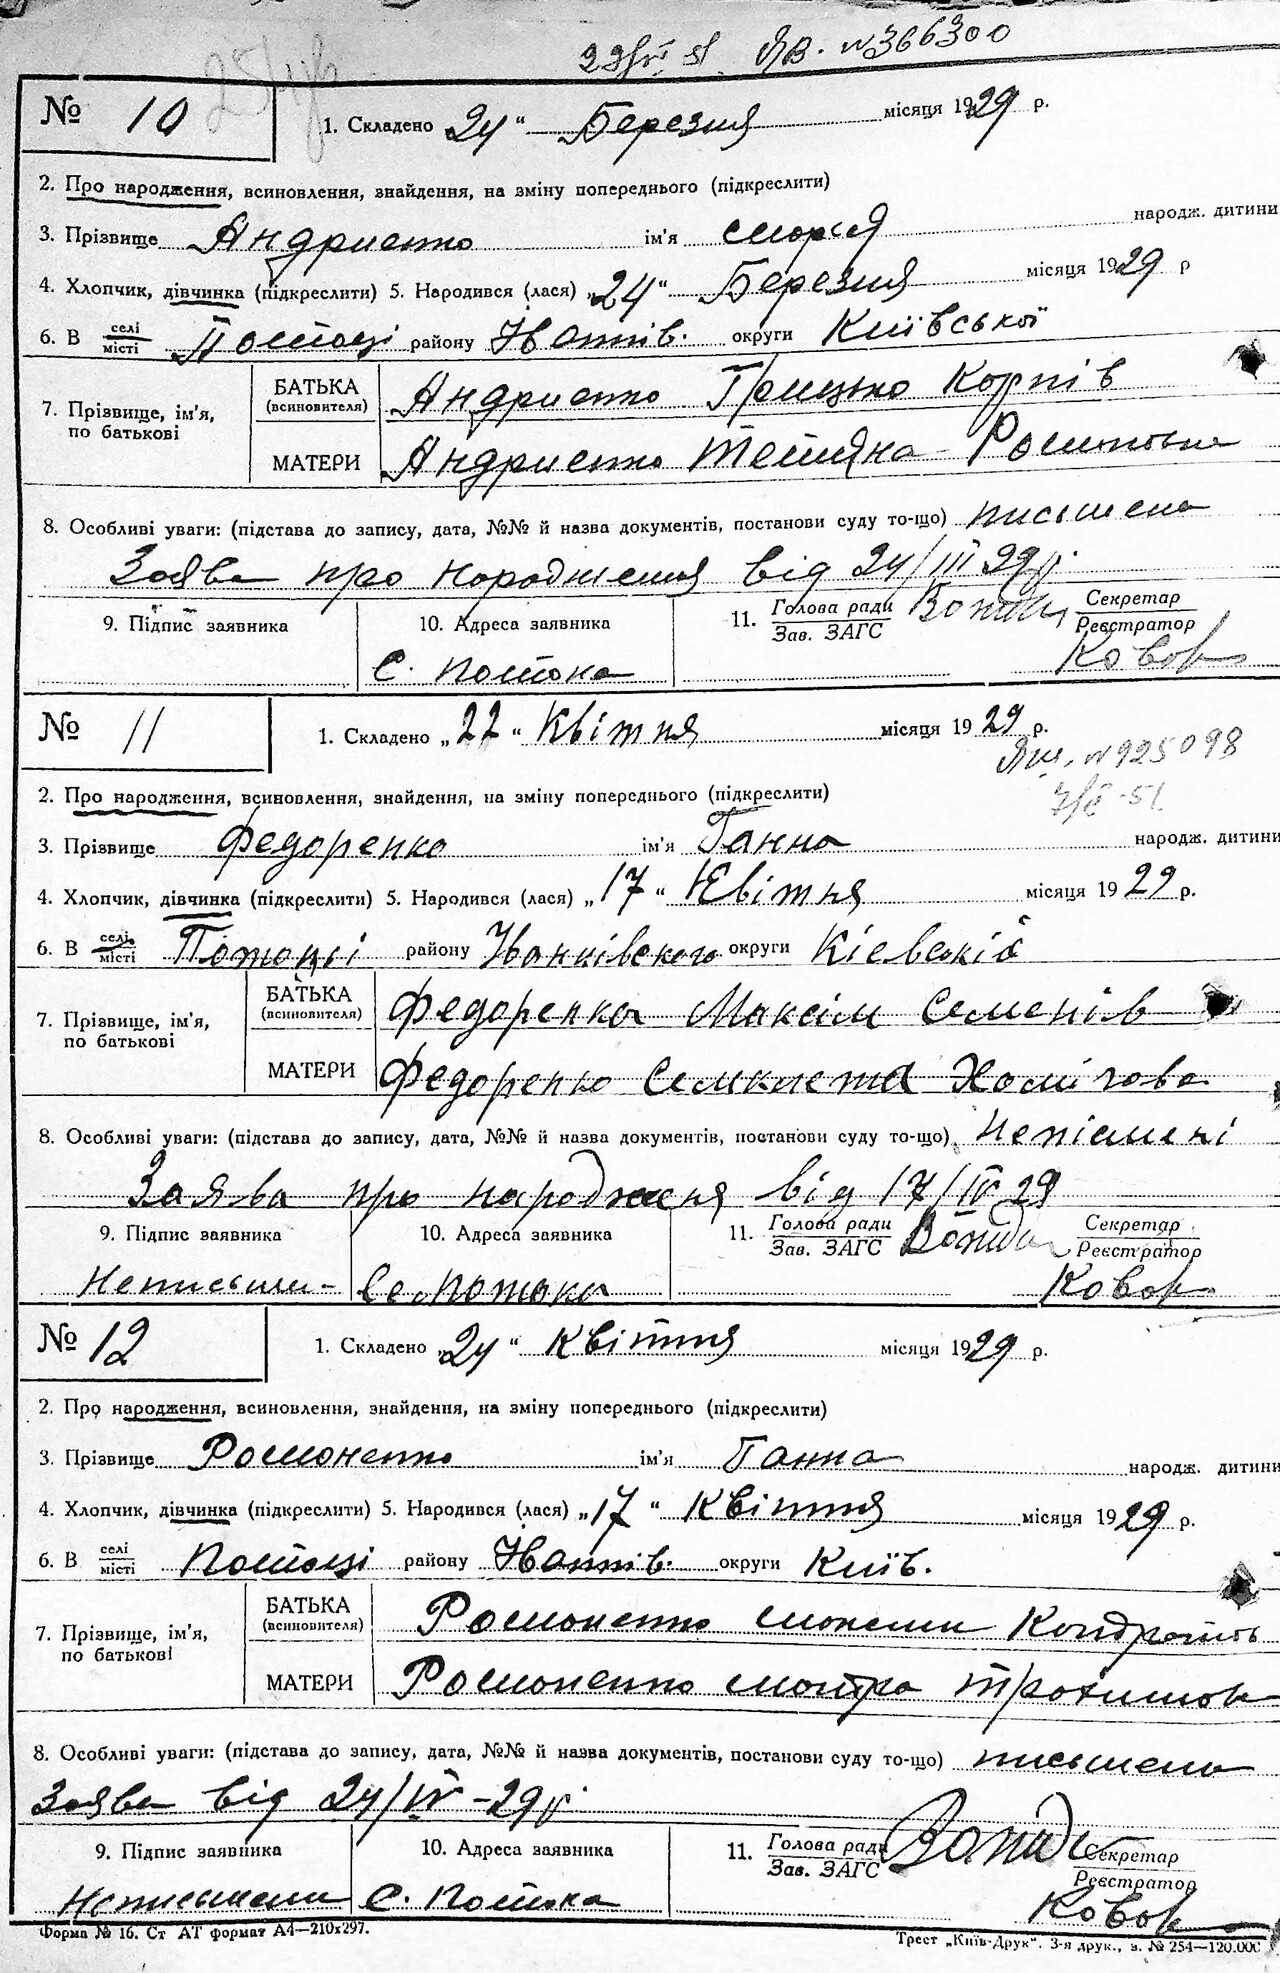 ЯВ. № 366300
№ 10
1. Складено „24“ Березня місяця 1929 р.
2. Про народження, всиновлення, знайдення, на зміну попереднього (підкреслити)
3. Прізвище Андриенко ім'я Марія народж. дитини
4. Хлопчик, дівчинка (підкреслити) 5. Народився (лася) „24“ Березня місяця 1929 р
6. В селі/місті Потоці району Іванків. округи Київської
7. Прізвище, ім'я, по батькові
БАТЬКА (всиновителя) Андриенко Грицько Корнів
МАТЕРИ Андриенко Тетяна
8. Особливі уваги: (підстава до запису, дата, №№ й назва документів, постанови суду то-що) письмена
Заява про народження від 24/III 29 р.
9. Підпис заявника 10. Адреса заявника 11. Голова ради/Зав. ЗАГС Секретар/Реєстратор
с. Потока Ковал
№ 11
1. Складено „22“ Квітня місяця 1929 р.
№ 925098
2. Про народження, всиновлення, знайдення, на зміну попереднього (підкреслити)
3. Прізвище Федоренко ім'я Ганна народж. дитини
4. Хлопчик, дівчинка (підкреслити) 5. Народився (лася) „17“ Квітня місяця 1929 р.
6. В селі/місті Потоці району Іванківского округи Кіевскій
7. Прізвище, ім'я, по батькові
БАТЬКА (всиновителя) Федоренко Максім Семенів
МАТЕРИ Федоренко Хомічова
8. Особливі уваги: (підстава до запису, дата, №№ й назва документів, постанови суду то-що) Непісмені
Заява про народженя від 17/IV 29
9. Підпис заявника 10. Адреса заявника 11. Голова ради/Зав. ЗАГС Секретар/Реєстратор
Неписьми- Се Потока Ковал
№ 12
1. Складено „24“ Квітня місяця 1929 р.
2. Про народження, всиновлення, знайдення, на зміну попереднього (підкреслити)
3. Прізвище Романенко ім'я Ганна народж. дитини
4. Хлопчик, дівчинка (підкреслити) 5. Народився (лася) „17“ Квітня місяця 1929 р.
6. В селі/місті Потоці району Іванків. округи Київ.
7. Прізвище, ім'я, по батькові
БАТЬКА (всиновителя) Романенко Кондратів
МАТЕРИ Романенко Мотря Трохимов
8. Особливі уваги: (підстава до запису, дата, №№ й назва документів, постанови суду то-що) письмена
Заява від 24/IV-29 р.
9. Підпис заявника 10. Адреса заявника 11. Голова ради/Зав. ЗАГС Секретар/Реєстратор
Неписьмени с. Потока Ковал
Форма № 16. Ст АТ формат А4—210х297.
Трест „Київ-Друк“. 3-я друк., з. № 254—120.000